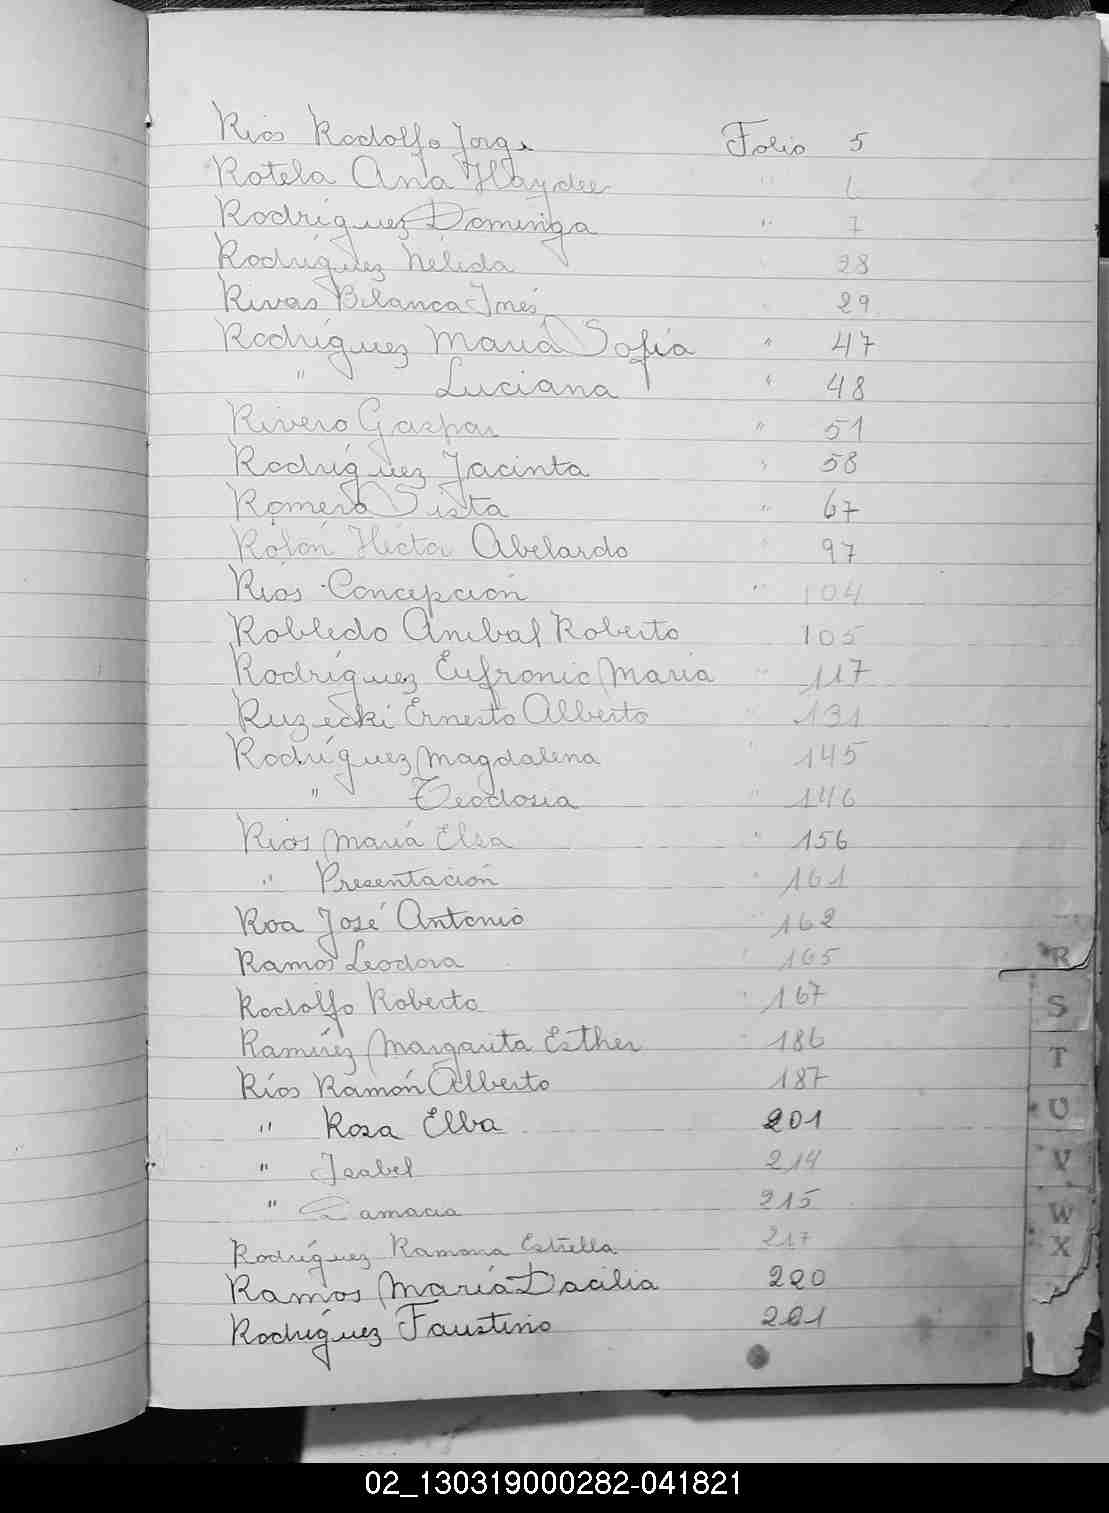 Ríos Rodolfo Jorge Folio 5
Rotela Ana Haydee " 6
Rodríguez Dominga " 7
Rodríguez Nélida 28
Rivas Blanca Inés 29
Rodríguez María Sofía " 47
" Luciana " 48
Rivero Gaspar " 51
Rodríguez Jacinta " 58
Romero Sixta " 67
Rolón Héctor Abelardo " 97
Ríos Concepción " 104
Robledo Anibal Roberto 105
Rodríguez Eufronic María " 117
Ruzecki Ernesto Alberto " 131
Rodríguez Magdalena " 145
" Teodosia " 146
Ríos María Elsa " 156
" Presentación " 161
Roa José Antonio " 162
Ramos Leodora " 165
Rodolfo Roberto " 167
Ramírez Margarita Esther " 186
Ríos Ramón Alberto 187
" Rosa Elba 201
" Isabel 214
" Damacia 215
Rodríguez Ramona Estrella 217
Ramos María Dacilia 220
Rodríguez Faustino 221
R
S
T
U
V
W
X
02_130319000282-041821